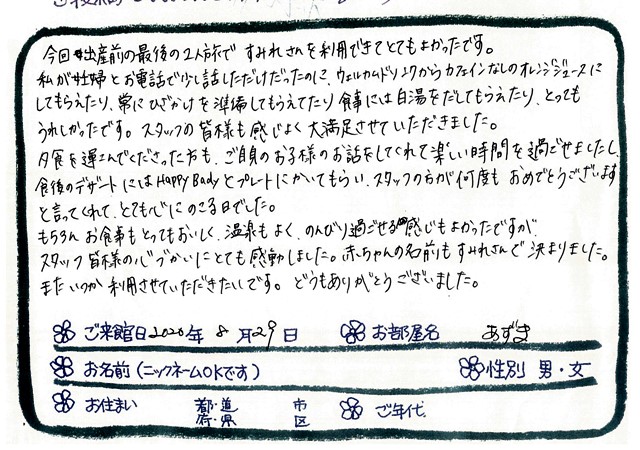 今回出産前の最後の2人旅で すみれさんを利用できてとてもよかったです。
私が妊婦とお電話で少し話しただけだったのに、ウェルカムドリンクからカフェインなしのオレンジジュースに
してもらえたり、常にひざかけを準備してもらえてたり食事には白湯をだしてもらえたり、とっても
うれしかったです。スタッフの皆様も感じよく大満足させていただきました。
夕食を運こんでくださった方も、ご自身のお子様のお話をしてくれて楽しい時間を過ごせましたし、
食後のデザートにはHAPPY Badyとプレートにかいてもらい、スタッフの方が何度もおめでとうございます
と言ってくれて、とても心にのこる日でした。
もちろんお食事もとってもおいしく、温泉もよく、のんびり過ごせる感じもよかったですが
スタッフ皆様の心づかいにとても感動しました。赤ちゃんの名前もすみれさんで決まりました。
またいつか利用させていただきたいです。どうもありがとうございました。
ご来館日2020年 8月29日 お部屋名 あずま
お名前(ニックネームOKです) 性別 男・女
お住まい 都・道 市 ご年代
府・県 区